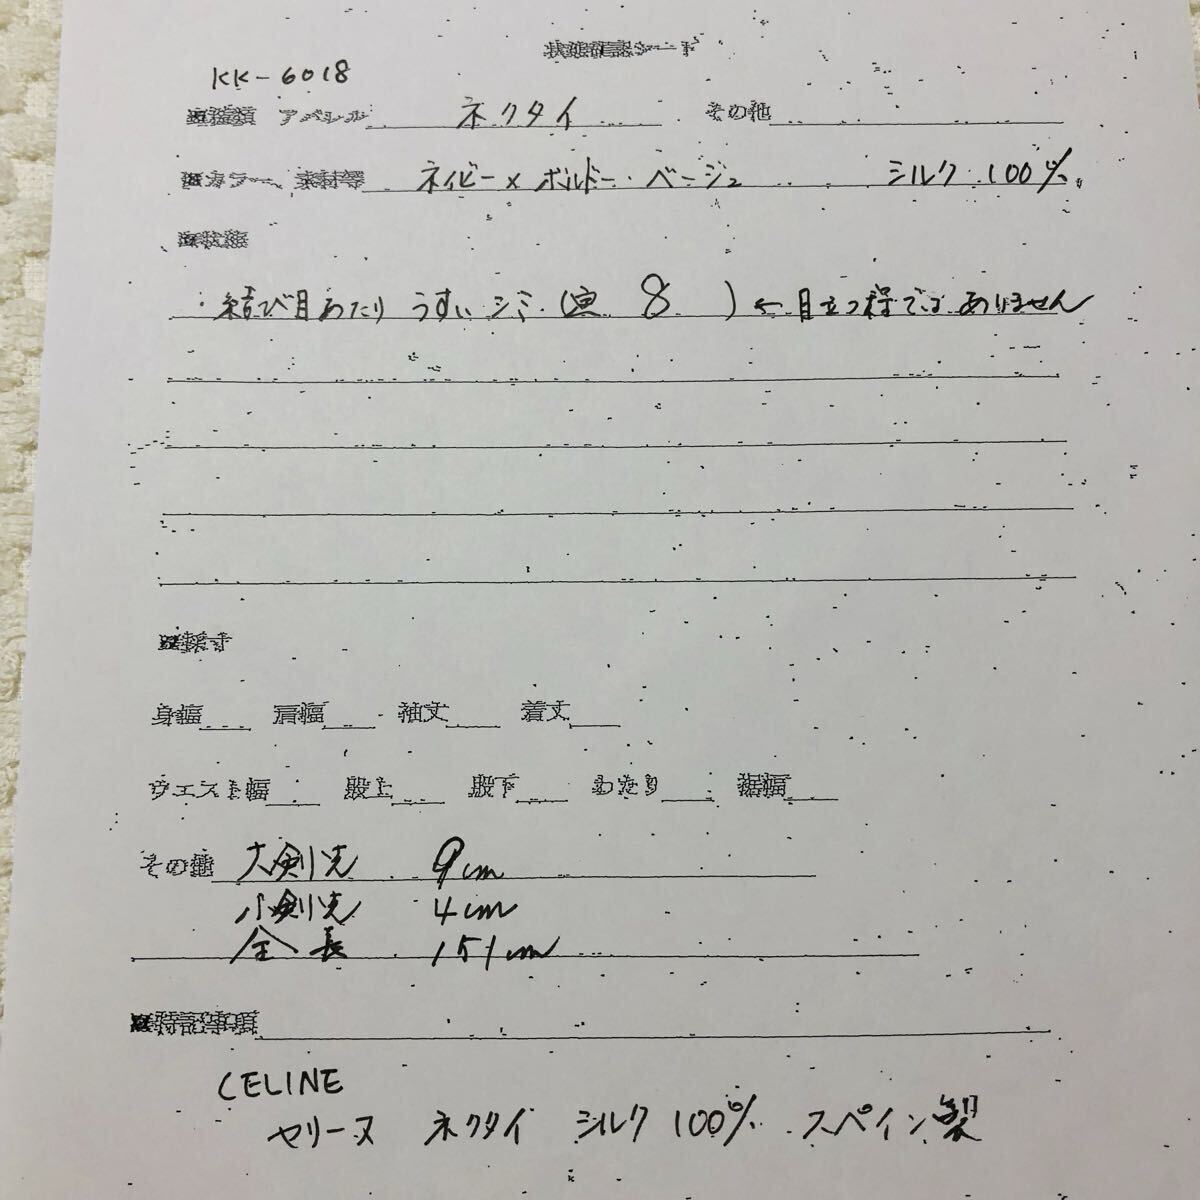 状態確認シート
KK-6018
■種類 アパレル ネクタイ その他
■カラー、素材等 ネイビー×ボルドー・ベージュ シルク100%
■状態
・結び目あたり うすいシミ( 8 )←目立つ程ではありません
■採寸
身幅 肩幅 袖丈 着丈
ウエスト幅 股上 股下 わたり 裾幅
その他 大剣先 9cm
小剣先 4cm
全長 151cm
■特記事項
CELINE
セリーヌ ネクタイ シルク100% スペイン製